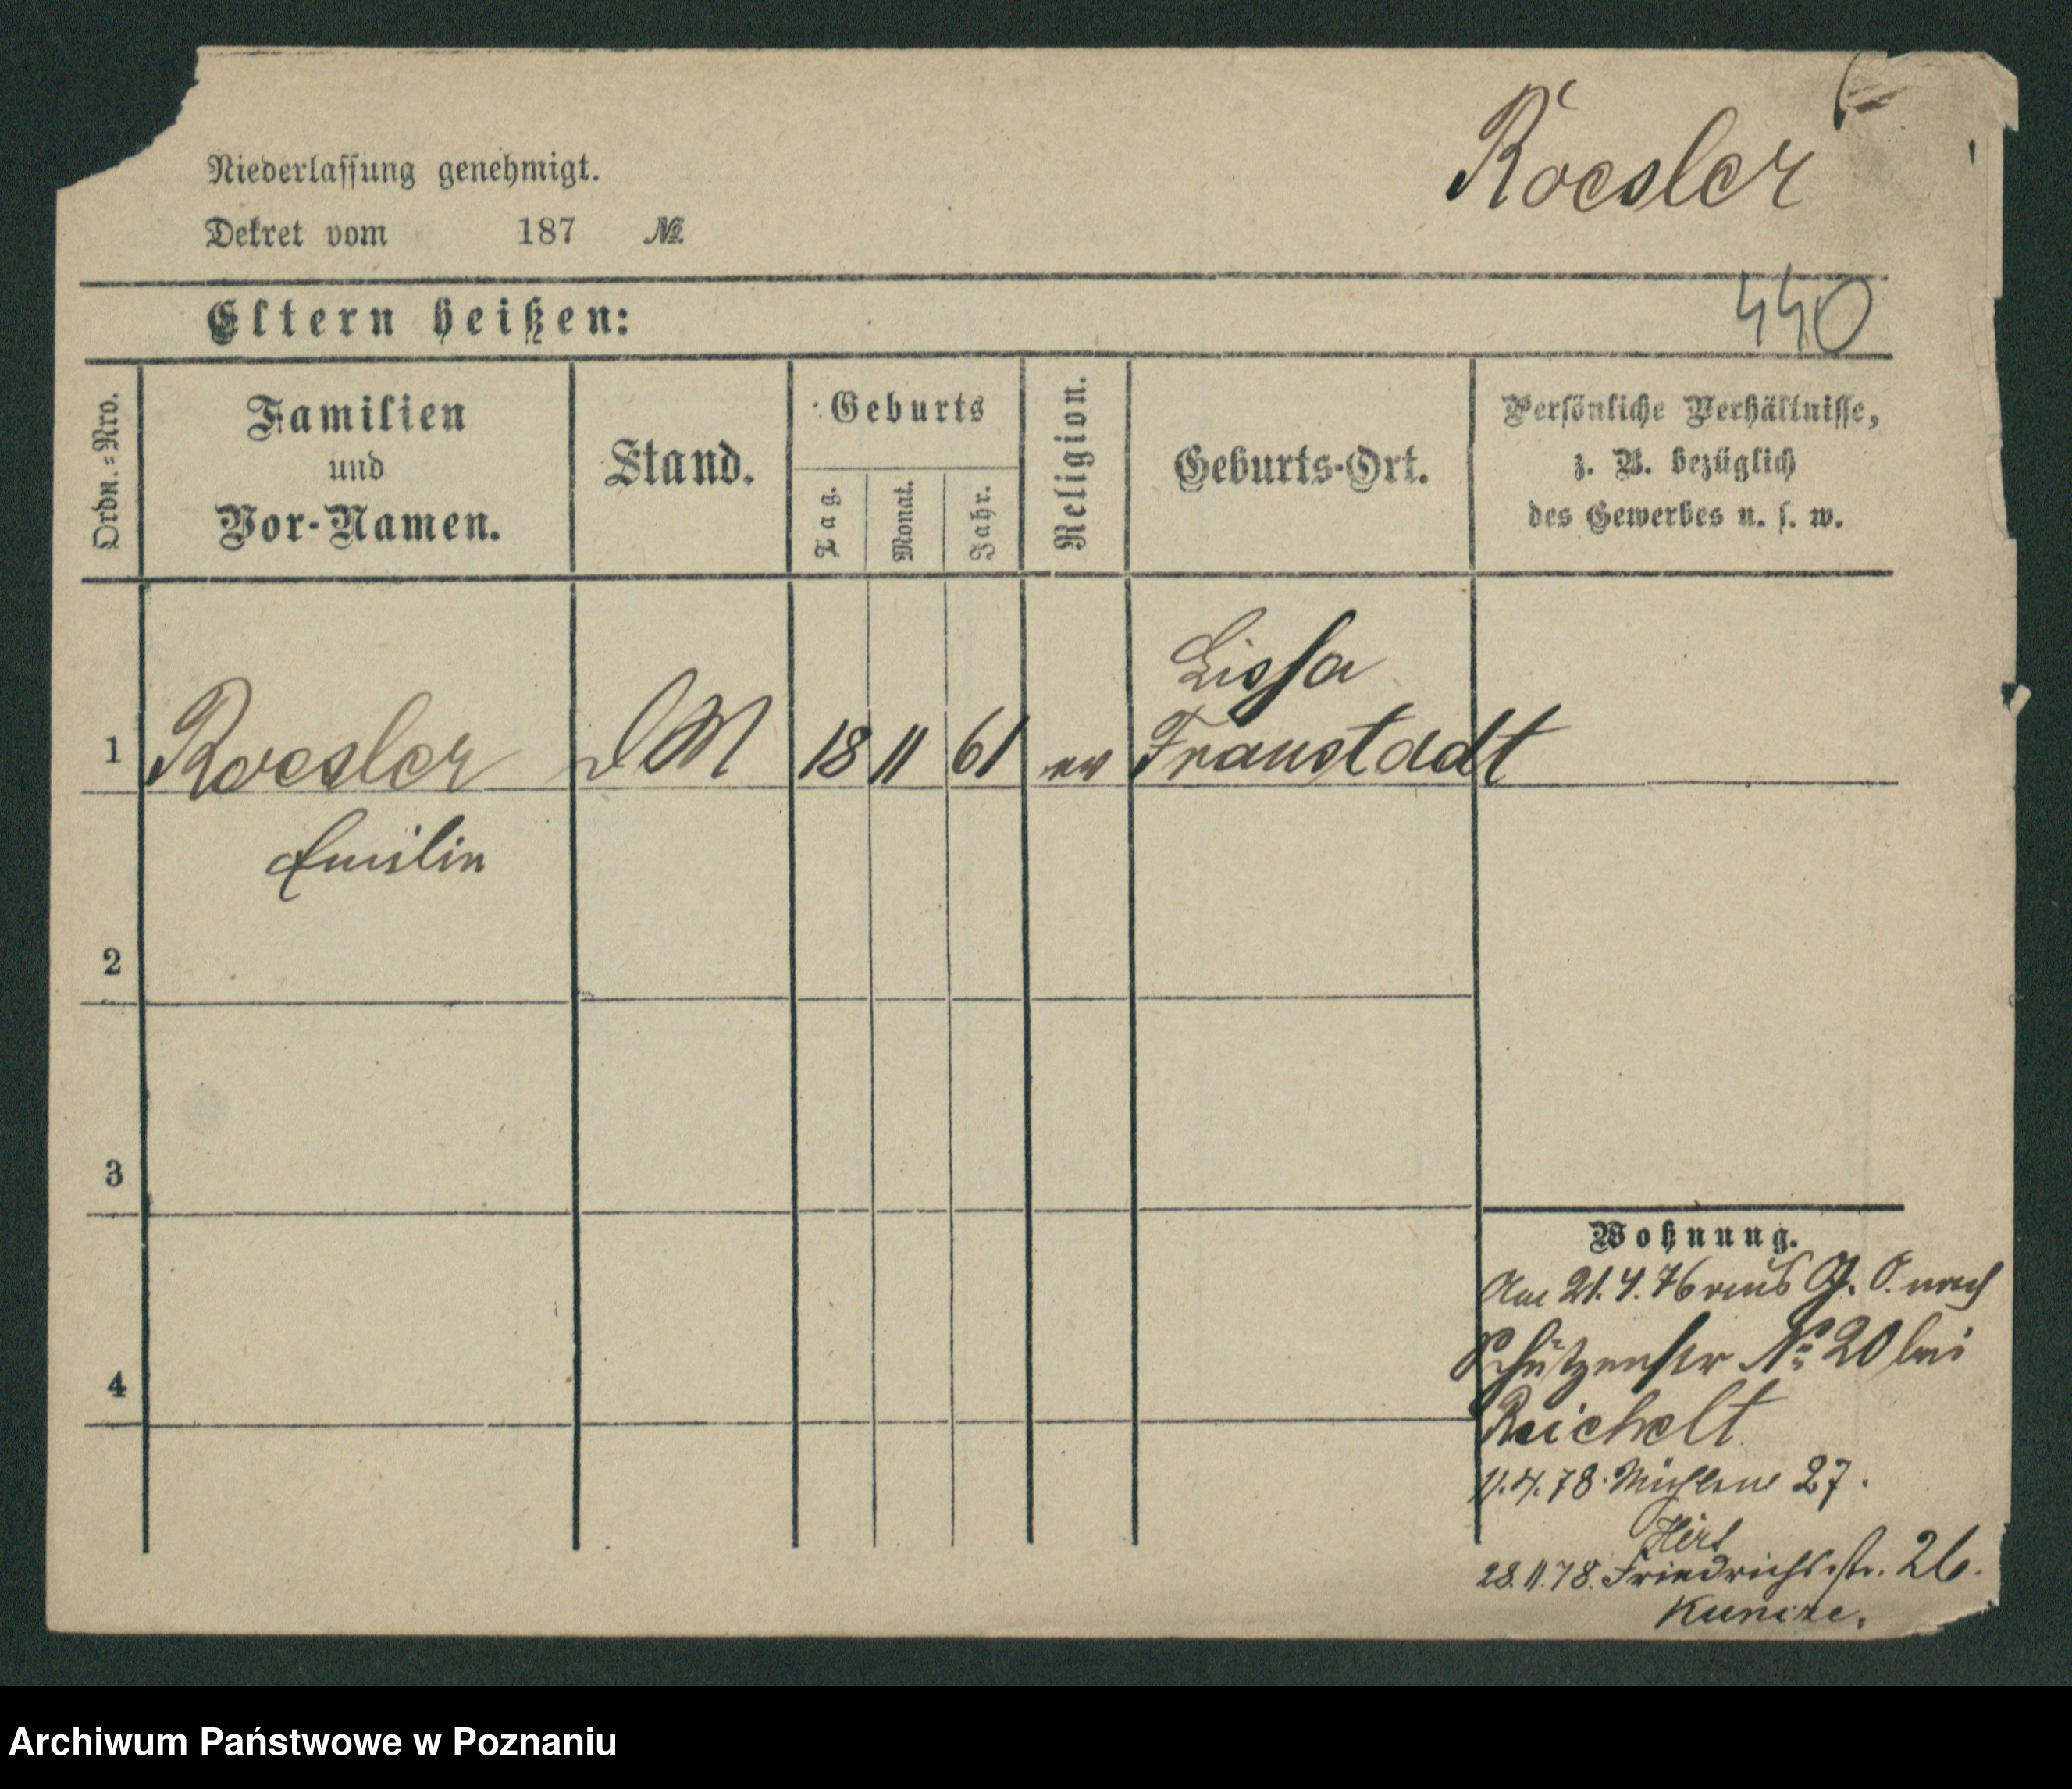 Roesler
Niederlassung genehmigt.
Dekret vom 187 №
440
Eltern heißen:
Ordn.=Nro.
Familien
und
Vor-Namen.
Stand.
Geburts
Tag.
Monat.
Jahr.
Religion.
Geburts-Ort.
Persönliche Verhältnisse,
z. B. bezüglich
des Gewerbes u. s. w.
Lissa
1 Roesler DM 18 11 61 ev Fraustadt
Emilie
2
3
4
Wohnung.
Am 21.4.76 aus G. O. nach
Schützenstr № 20 bei
Reichelt
11.4.78. Mühlens 27.
Hirt
28.11.78. Friedrichsstr. 26.
Kuntze.
Archiwum Państwowe w Poznaniu